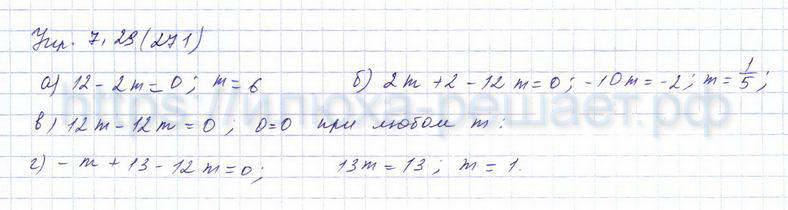 Упр. 7.29(271)
а) 12-2m=0; m=6 б) 2m+2-12m=0; -10m=-2; m=1/5;
https://илюха-решает.рф
в) 12m-12m=0; 0=0 при любом m:
г) -m+13-12m=0; 13m=13; m=1.